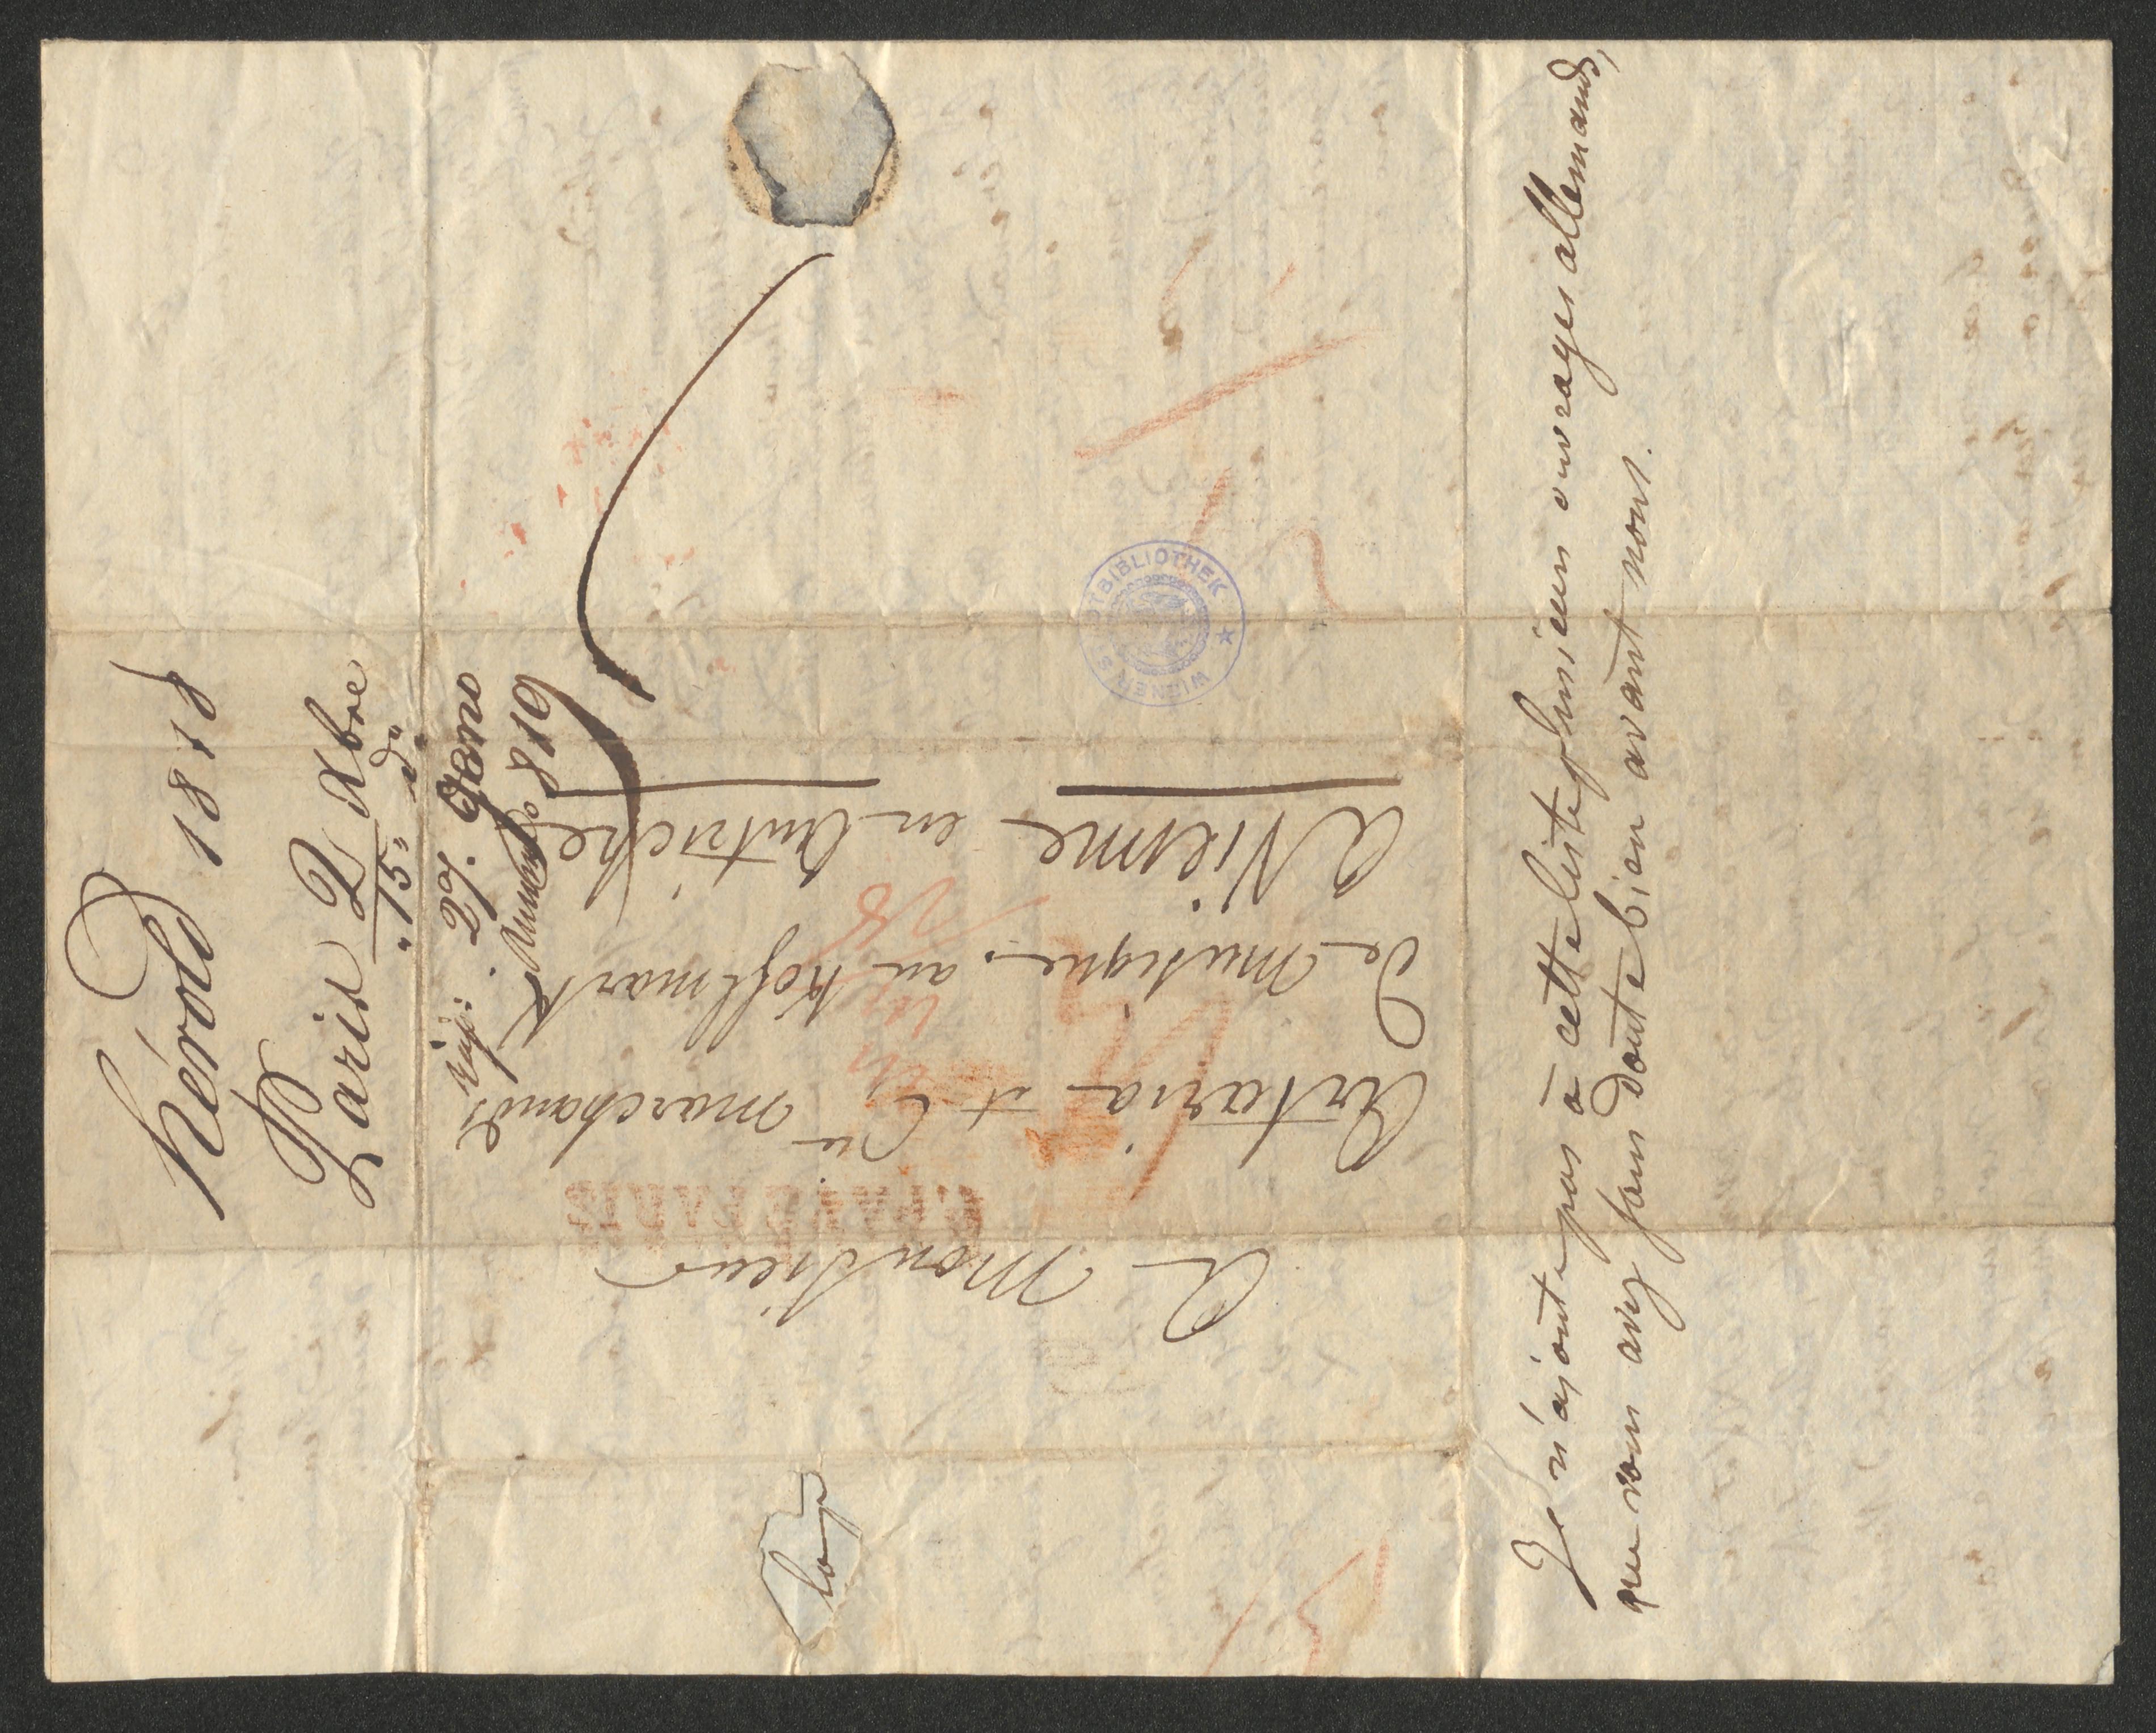 hérold 1818
Paris 2 Xbre
" 15 " do
rép: 27. Genº
1819
A Monsieur
Artaria et Cie marchand
de musique. au Kohlmarkt
A Vienne en Autriche
Je n'ajoute pas à cette liste plusieurs ouvrages allemands,
que vous avez sans doute bien avant nous.
WIENER STADTBIBLIOTHEK